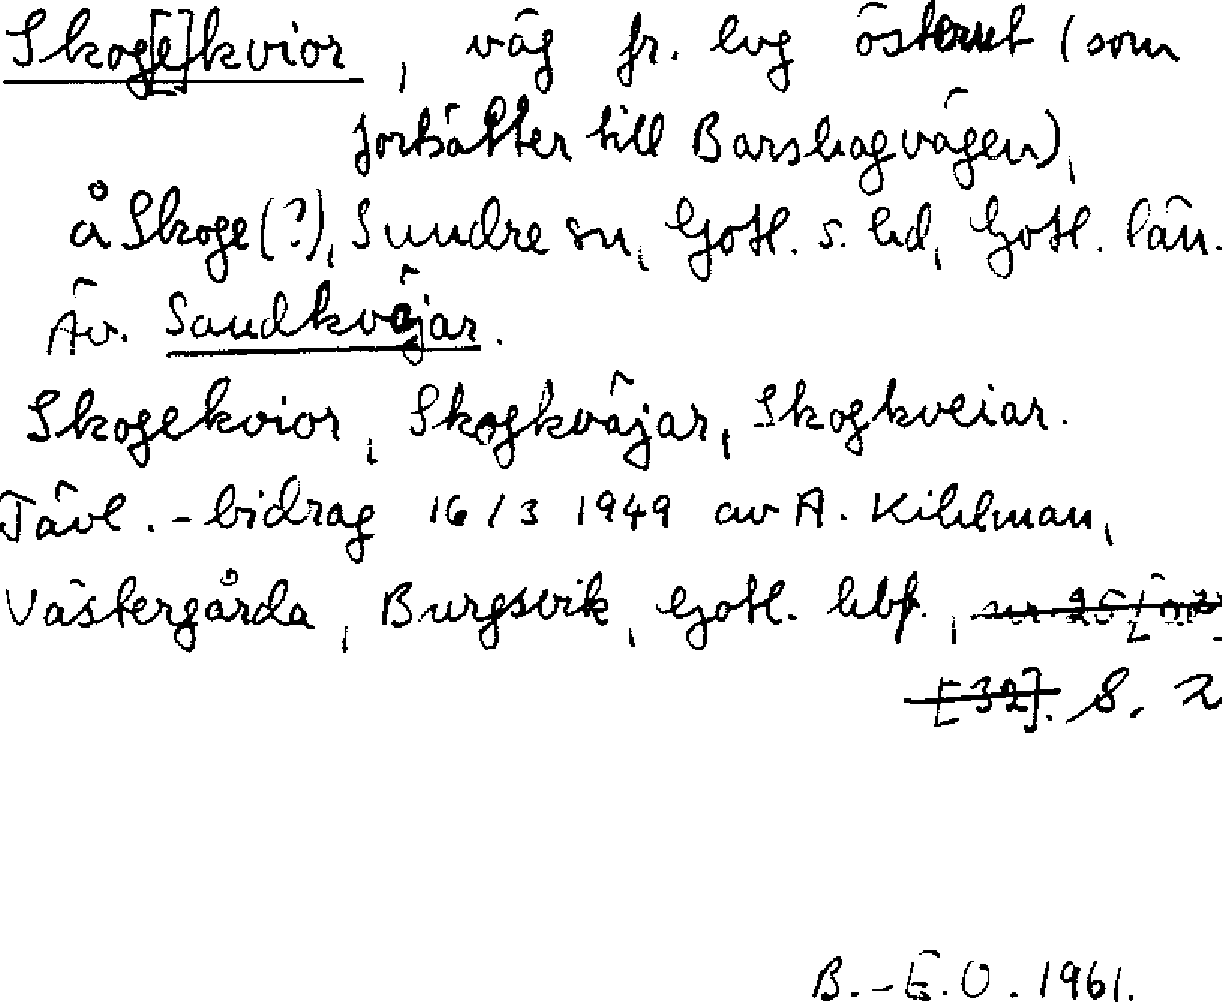 Skog[e]kvior, väg fr. lvg österut (som
fortsätter till Barshagvägen),
å Skoge(?), Sundre sn, Gotl. s. hd, Gotl. län.
Äv. Sandkväjar.
Skogekvior, Skogkväjar, Skogkveiar.
Tävl.-bidrag 16/3 1949 av A. Kihlman,
Västergårda, Burgsvik, Gotl. hbf.,
[32]. S. 2
B.-E.O. 1961.